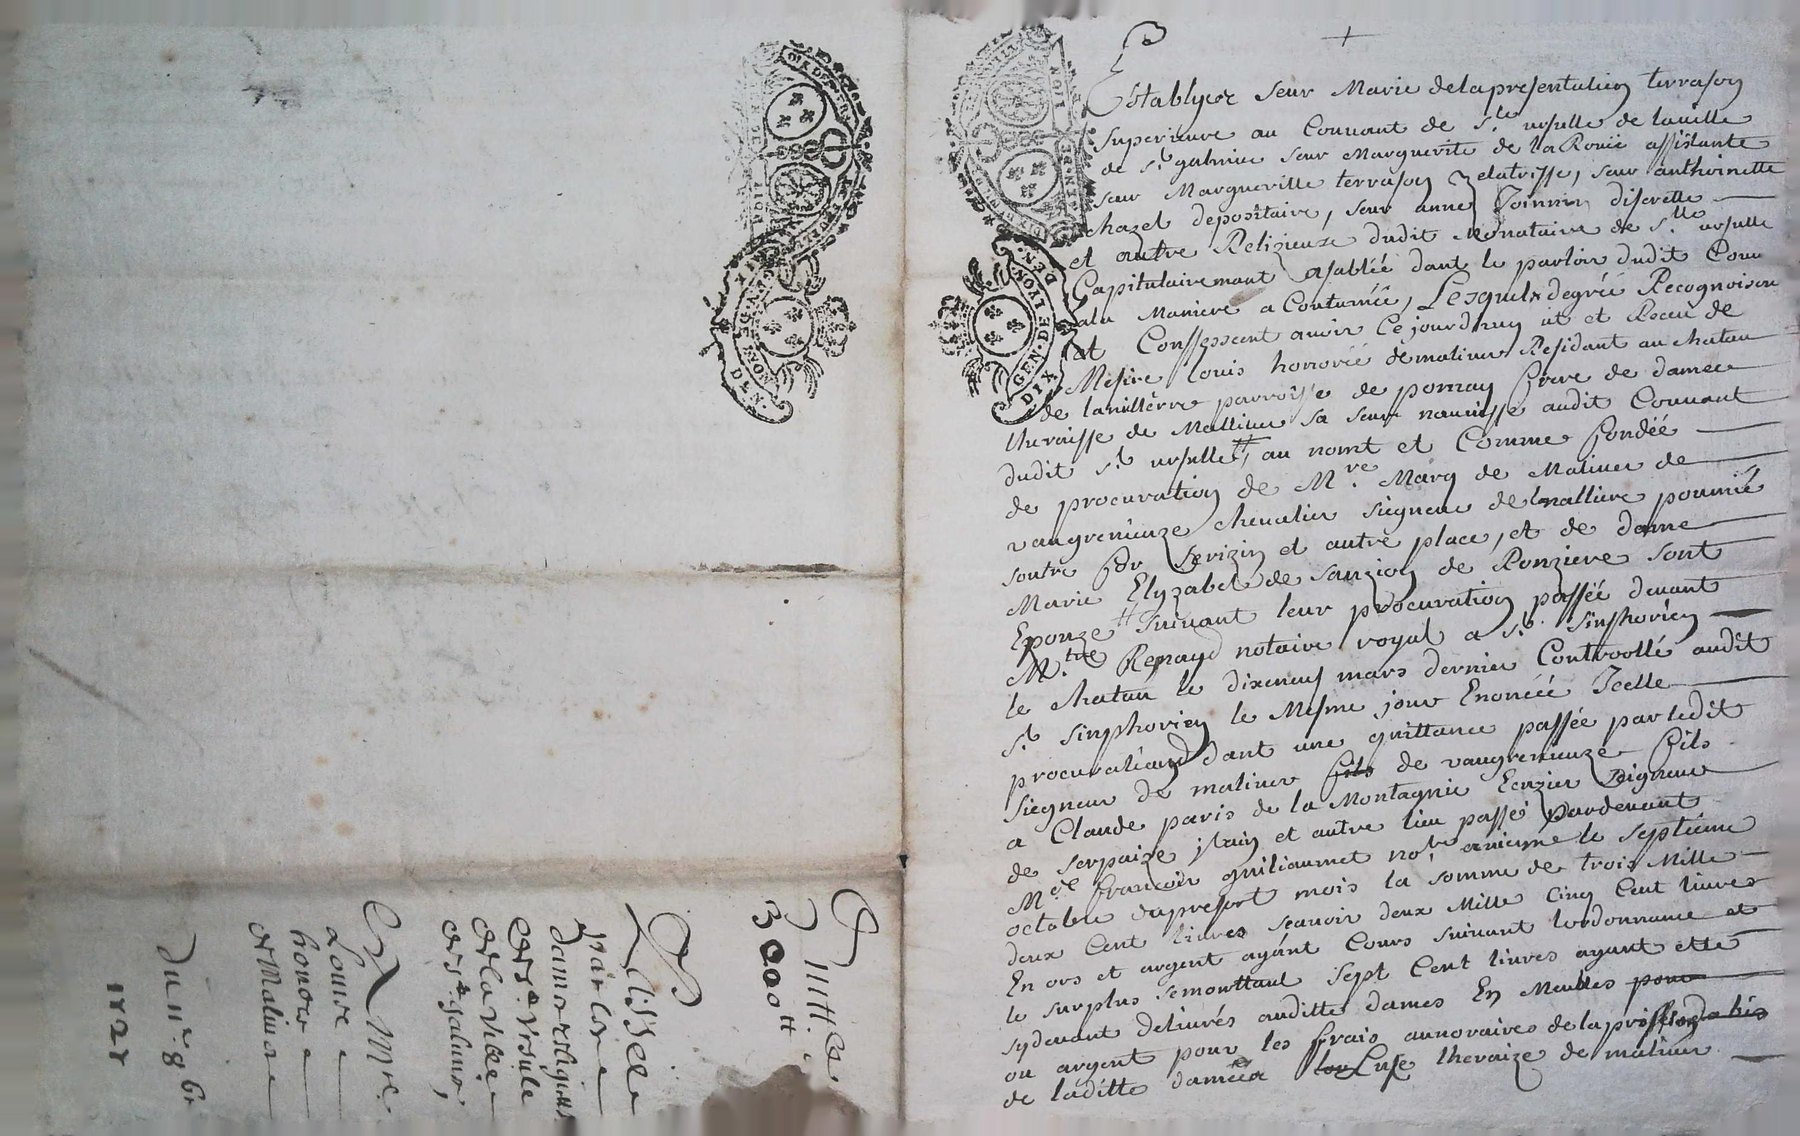 Establyes seur Marie delapresentation terrason
superieure au Couuant de s.te ursulle de laville
de s.t galmier seur Marguerite de la Roüe assistante
seur Margueritte terrason zelatrisse, seur anthoinette
chazel depositaire, seur anne Joinnin discrette
et autre Relizieuze dudit Monataire de S.tte ursulle
Capitulairemant asablée dant le parloir dudit Couu
ala Maniere a Coutumée, Lesquels degrée Recognoison
et Conffessent auoir Cejourdhuy ut et Receu de
Mesire louis honorée demaliuer Residant au chatau
de lamillerre parroisse de pomay frere de damee
theraisse de Malliuer sa seur nauuisse audit Couuant
dudit s.t ursulle, au nomt et Comme fondée
de procuration de M.re Marq de Maliuer de
vaugrenieuze cheualier siegneur de lmalliere poumié
soutre for serizin et autre place, et de dame
Marie Elyzabet de sanzion de Ronziere sont
Epouze suiuant leur procuration passée deuant
M.tre Renayd notaire royal a s.t sinphorien
le chatau le dixeneuf mars dernier Controollé audit
s.t sinphorien le Mesme jour Enoncéé Jcelle
procuration dant une quittance passée parledit
siegneur de maliuer fils de vaugrenieuze fils
a Claude paris de la Montagnie Ecuzier seigneur
de serpaize jlain et autre lieu passé pardeuant
M.e francois guiliaumet no.re a vienne le septiéme
octobre du present mois la somme de trois Mille
deux Cent liures scauoir deux Mille Cinq Cent liures
En ors et argent ayant Cours suiuant lordonnance et
le surplus semonttant sept Cent liures ayant ette
sydeuant deliurés auditte dames En Meubles pour
ou argent pour les frais aunoraires de la proffission de his
de laditte damée Luse theraize de maliuer
DIX DEN.
GEN. DE LYON
Quittce
3000 tt
passee par les
dammes religieuses
de s.te Ursule
de la ville
de s.t galmier,
a Mre
Louis
honoré
de Maliuer
Du 11.e 8br
1728